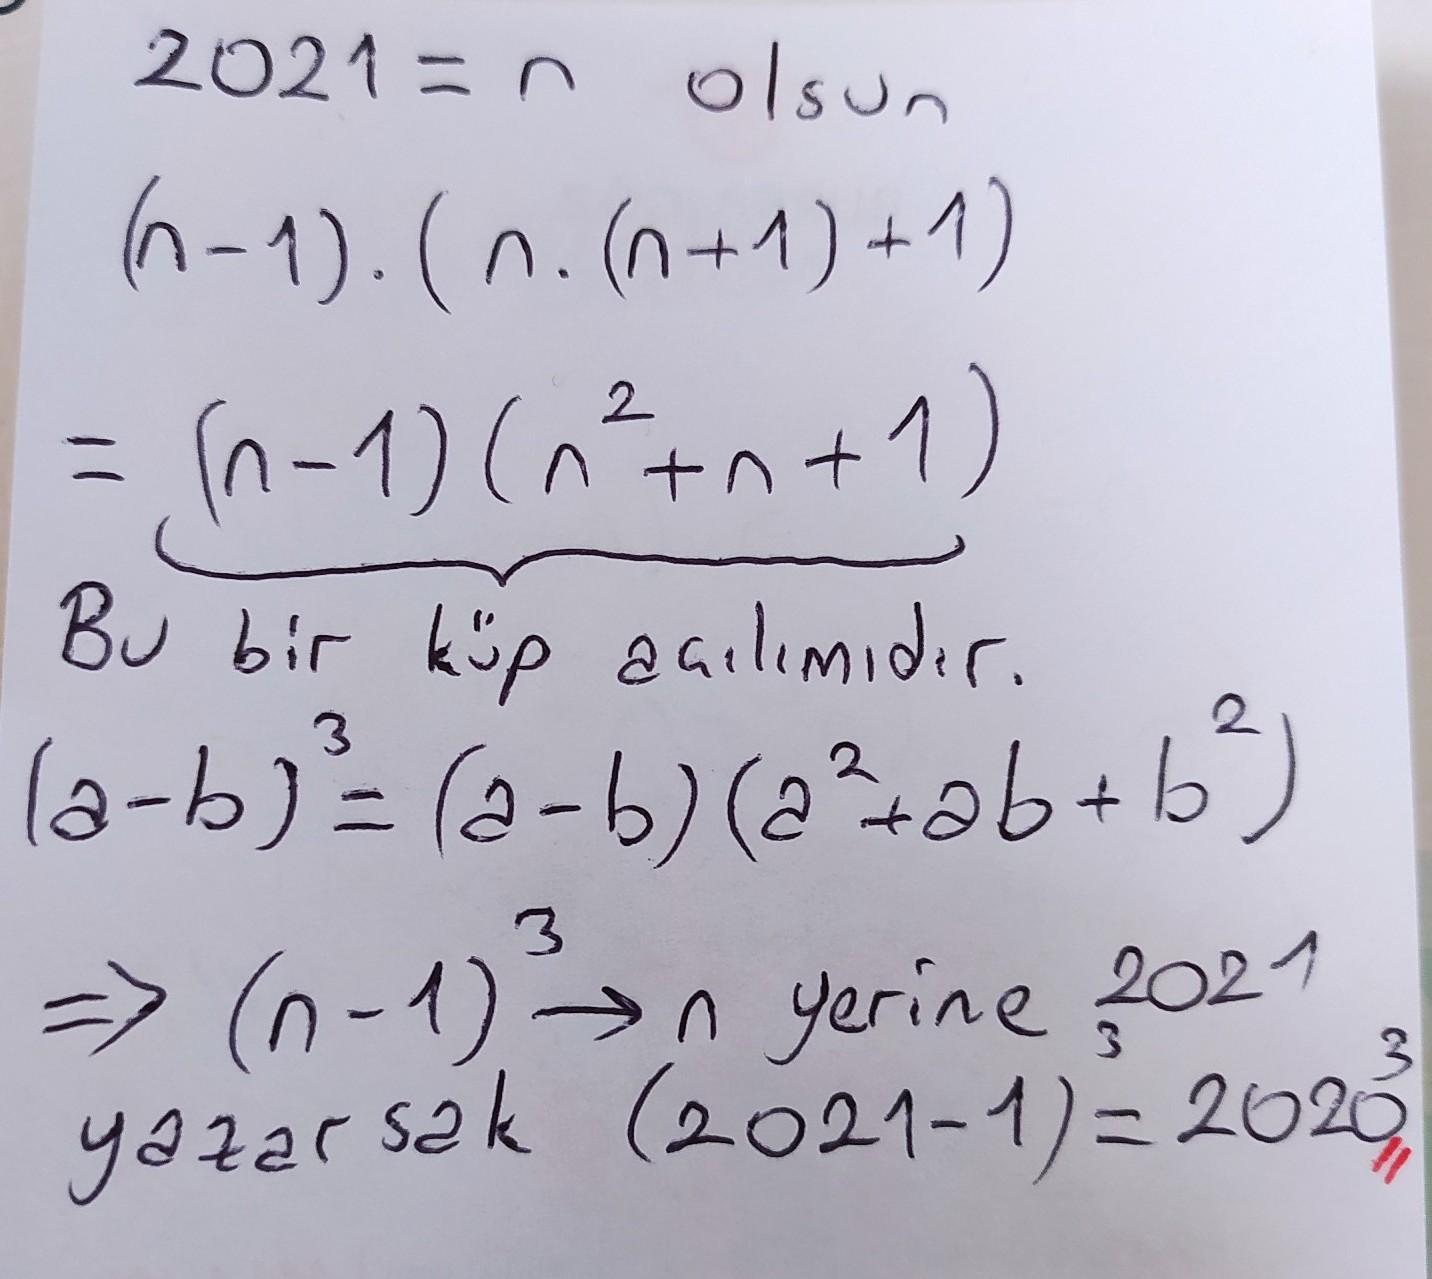 2021 = n olsun
(n-1).(n.(n+1)+1)
= (n-1)(n²+n+1)
Bu bir küp açılımıdır.
(a-b)³ = (a-b)(a²+ab+b²)
⇒ (n-1)³ → n yerine 2021
yazarsak (2021-1)³ = 2020³